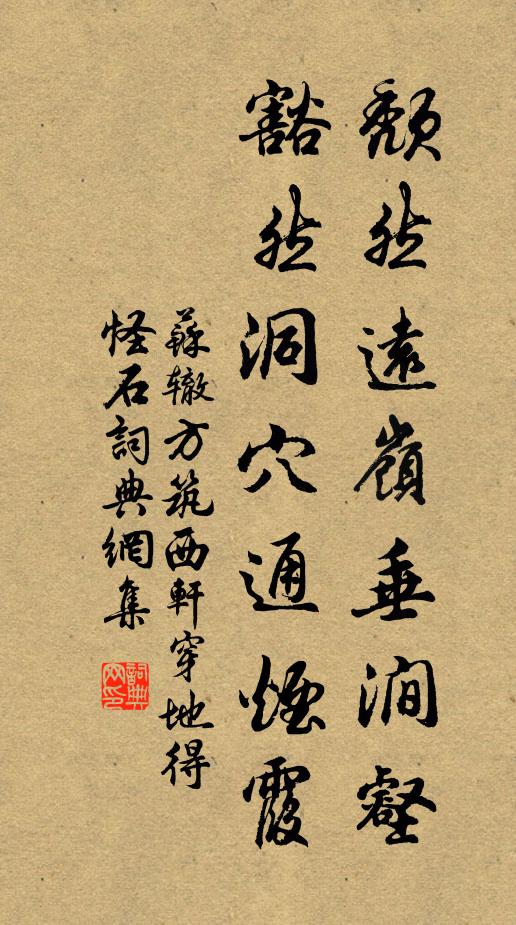 頹然遠嶺垂澗壑
豁然洞穴通煙霞
蘇轍方筑西軒穿地得
怪石詞典網集
詞典
网印